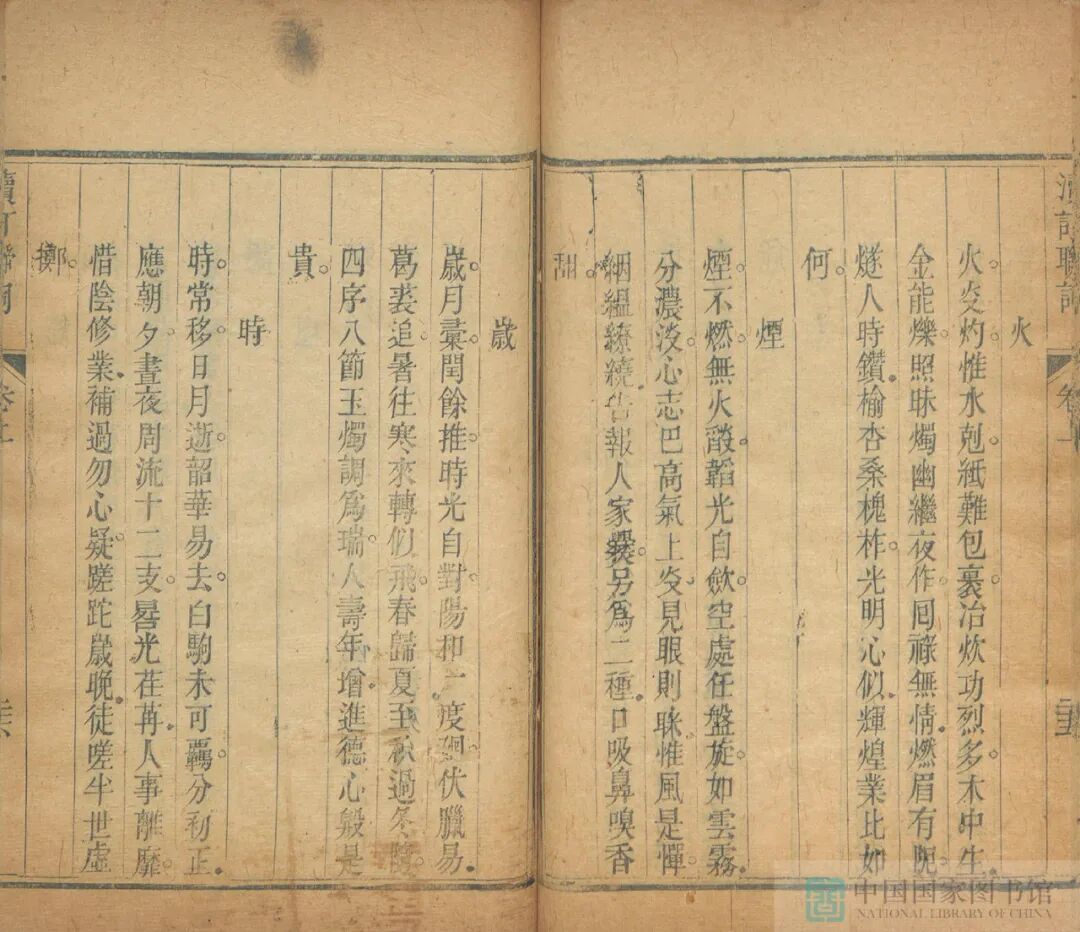 火
火炎灼惟水剋紙難包裹冶炊功烈多木中生
金能爍照昧燭幽繼夜作回祿無情燃眉有
燧人時鑽榆杏桑槐柞光明沁似輝煌業比如
何
煙
煙不燃無火韜光自斂空處任盤旋如雲霧
分濃淡心志巴高氣上炎見眼則眯惟風是憚
絪縕繚繞告報人家爨另為二種口吸鼻嗅香
歲
歲月橐閏餘推時光自對陽和度伏臘易
葛裘追暑往寒來轉似飛春歸夏至秋過冬
四序八節玉燭調為瑞人壽年增進德心般是
貴
時
時常移日月逝韶華易去白駒未可羈分秒正
應朝夕晝夜周流十二支晷光荏苒人事離靡
惜陰修業補過勿心疑蹉跎歲晚徒嗟半世虛
擲
卷上
中国国家图书馆
NATIONAL LIBRARY OF CHINA